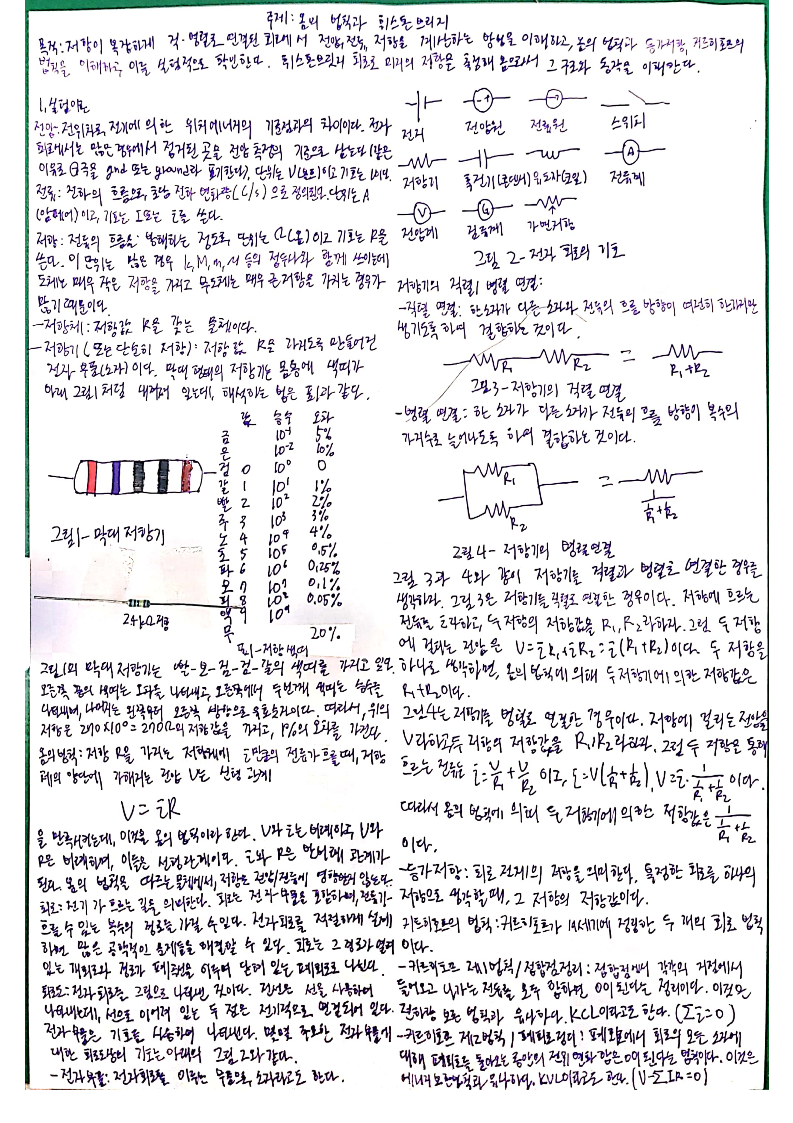 주제: 옴의 법칙과 휘스톤 브리지
목적: 저항이 복잡하게 직·병렬로 연결된 회로에서 전압, 전류, 저항을 계산하는 방법을 이해하고, 옴의 법칙과 등가저항, 키르히호프의
법칙을 이해하고 이를 실험적으로 확인한다. 휘스톤브리지 회로로 미지의 저항을 측정해 봄으로서 그 구조와 동작을 이해한다.
1. 실험이론
전압: 전위차로, 전기에 의한 위치에너지의 기준점과의 차이이다. 전자
회로에서는 많은 경우에서 접지된 곳을 전압 측정의 기준으로 삼는다(같은
이유로 ⊖극을 gnd 또는 ground라 표기한다), 단위는 V(볼트)이고 기호는
전류: 전하의 흐름으로, 초당 전하 변화량(C/s)으로 정의된다. 단위는 A
(암페어)이고, 기호는 I또는 i를 쓴다.
저항: 전류의 흐름을 방해하는 정도로, 단위는 Ω(옴)이고 기호는 R을
쓴다. 이 단위는 많은 경우 k, M, m, 승의 접두사와 함께 쓰이는데
도체는 매우 작은 저항을 가지고 부도체는 매우 큰 저항을 가지는 경우가
많기 때문이다.
-저항체: 저항값 R을 갖는 물체이다.
-저항기(또는 단순히 저항): 저항 값 R을 가지도록 만들어진
전자 부품(소자)이다. 막대 형태의 저항기는 몸통에 색띠가
아래 그림1처럼 새겨져 있는데, 해석하는 법은 표1과 같다.
값 승수 오차
금 10⁻¹ 5%
은 10⁻² 10%
검 0 10⁰ 0
갈 1 10¹ 1%
빨 2 10² 2%
주 3 10³ 3%
노 4 10⁴ 4%
초 5 10⁵ 0.5%
파 6 10⁶ 0.25%
보 7 10⁷ 0.1%
회 8 10⁸ 0.05%
백 9 10⁹
무 20%
그림1-막대 저항기
24kΩ저항
표1-저항 색띠
그림1의 막대 저항기는 빨-보-검-검-갈의 색띠를 가지고 있다.
오른쪽 끝의 색띠는 오차를 나타내고, 오른쪽에서 두번째 색띠는 승수를
나타내며, 나머지는 왼쪽부터 오른쪽 방향으로 유효숫자이다. 따라서, 위의
저항은 270×10⁰=270Ω의 저항값을 가지고, 1%의 오차를 가진다.
옴의 법칙: 저항 R을 가지는 저항체에 i만큼의 전류가 흐를 때, 저항
체의 양단에 가해지는 전압 V는 선형 관계
V=iR
을 만족시키는데, 이것을 옴의 법칙이라 한다. V와 i는 비례하고, V와
R은 비례하며, 이들은 선형관계이다. i와 R은 반비례 관계가
된다. 옴의 법칙을 따르는 물체에서, 저항은 전압/전류에 영향받지 않는다.
회로: 전기가 흐르는 길을 의미한다. 회로는 전자 부품을 포함하며, 전류가
흐를 수 있는 복수의 경로를 가질 수 있다. 전자회로를 적절하게 설계
하면 많은 공학적인 문제들을 해결할 수 있다. 회로는 그 경로가 열려
있는 개회로와 경로가 폐곡선을 이루며 닫혀 있는 폐회로로 나뉜다.
회로도: 전자회로를 그림으로 나타낸 것이다. 전선은 선을 사용하여
나타내는데, 선으로 이어져 있는 두 점은 전기적으로 연결되어 있다.
전자 부품은 기호를 사용하여 나타낸다. 몇몇 주요한 전자 부품에
대한 회로도상의 기호는 아래의 그림 2와 같다.
-전자부품: 전자회로를 이루는 부품으로, 소자라고도 한다.
전지 전압원 전류원 스위치
저항기 축전기(콘덴서) 유도자(코일) 전류계
A
V G
전압계 검류계 가변저항
그림 2-전자 회로의 기호
저항기의 직렬/병렬 연결:
-직렬 연결: 한소자가 다른 소자와 전류의 흐름 방향이 여전히 한가지만
생기도록 하여 결합하는 것이다.
R₁ R₂ = R₁+R₂
그림3-저항기의 직렬 연결
-병렬 연결: 한 소자가 다른 소자가 전류의 흐름 방향이 복수의
가지수로 늘어나도록 하여 결합하는 것이다.
R₁ R₂ = 1/(1/R₁+1/R₂)
그림4-저항기의 병렬연결
그림 3과 4와 같이 저항기를 직렬과 병렬로 연결한 경우를
생각하자. 그림 3은 저항기를 직렬로 연결한 경우이다. 저항에 흐르는
전류를 i라하고, 두 저항의 저항값을 R₁, R₂라하자. 그럼 두 저항
에 걸리는 전압은 V=iR₁+iR₂=i(R₁+R₂)이다. 두 저항을
하나로 생각하면, 옴의 법칙에 의해 두 저항기에 의한 저항값은
R₁+R₂이다.
그림4는 저항기를 병렬로 연결한 경우이다. 저항에 걸리는 전압을
V라하고 두 저항의 저항값을 R₁, R₂라하자. 그럼 두 저항을 통해
흐르는 전류는 i=V/R₁+V/R₂이고, i=V(1/R₁+1/R₂), V=i·1/(1/R₁+1/R₂)이다.
따라서 옴의 법칙에 의해 두 저항기에 의한 저항값은 1/(1/R₁+1/R₂)
이다.
-등가저항: 회로 전체의 저항을 의미한다. 특정한 회로를 하나의
저항으로 생각할 때, 그 저항의 저항값이다.
키르히호프의 법칙: 키르히호프가 19세기에 정립한 두 개의 회로 법칙
이다.
-키르히호프 제1법칙/접합점정리: 접합점에서 각각의 지점에서
들어오고 나가는 전류를 모두 합하면 0이 된다는 정리이다. 이것은
전하량 보존 법칙과 유사하다. KCL이라고도 한다. (∑i=0)
-키르히호프 제2법칙/폐회로정리: 폐회로에서 회로의 모든 소자에
대해 폐회로를 돌아오는 동안의 전위 변화 합은 0이 된다는 법칙이다. 이것은
에너지 보존법칙과 유사하다. KVL이라고도 한다. (V-∑IR=0)